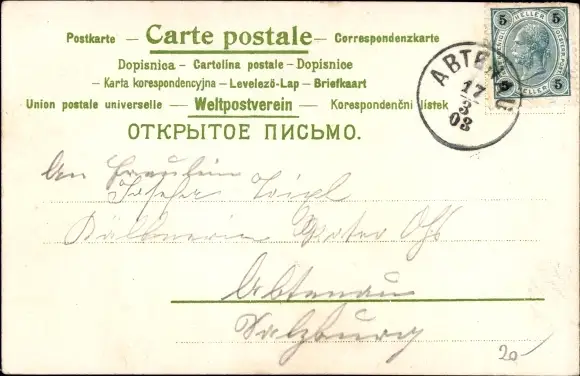 Postkarte – Carte postale – Correspondenzkarte
Dopisnica – Cartolina postale – Dopisnice
– Karta korespondencyjna – Levelező-Lap – Briefkaart
Union postale universelle – Weltpostverein – Korespondenční lístek
ОТКРЫТОЕ ПИСЬМО.
5 HELLER 5
5 5
HELLER
ABTENAU
17
3
03
An Fräulein
Josefa
Abtenau
Salzburg
20-